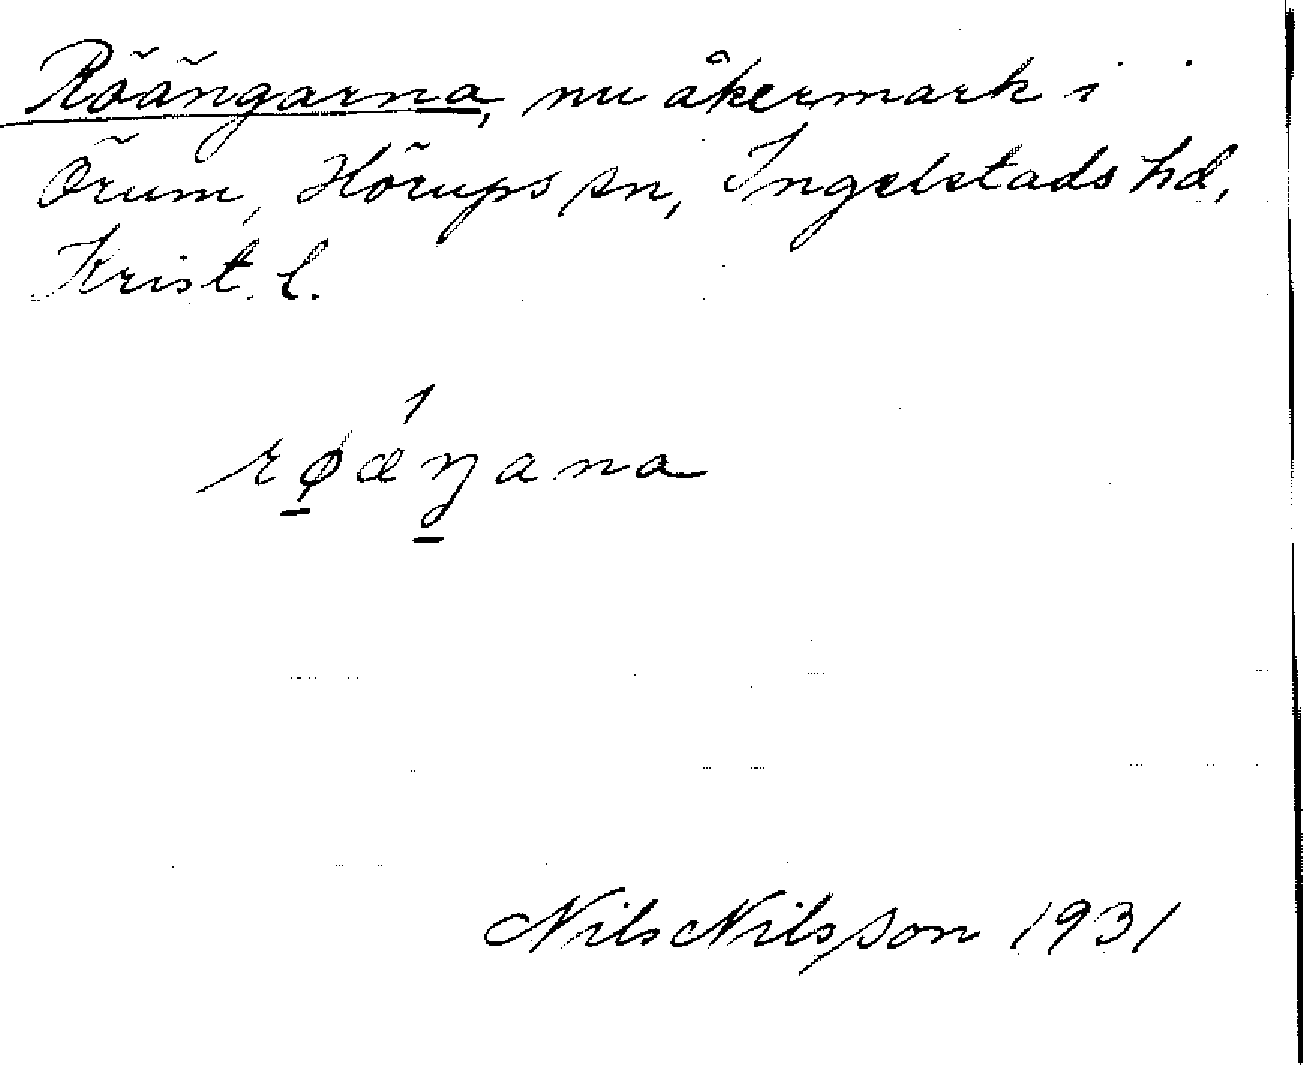 Röängarna, nu åkermark i
Örum, Hörups sn, Ingelstads hd,
Krist. l.
røæŋana
Nils Nilsson 1931